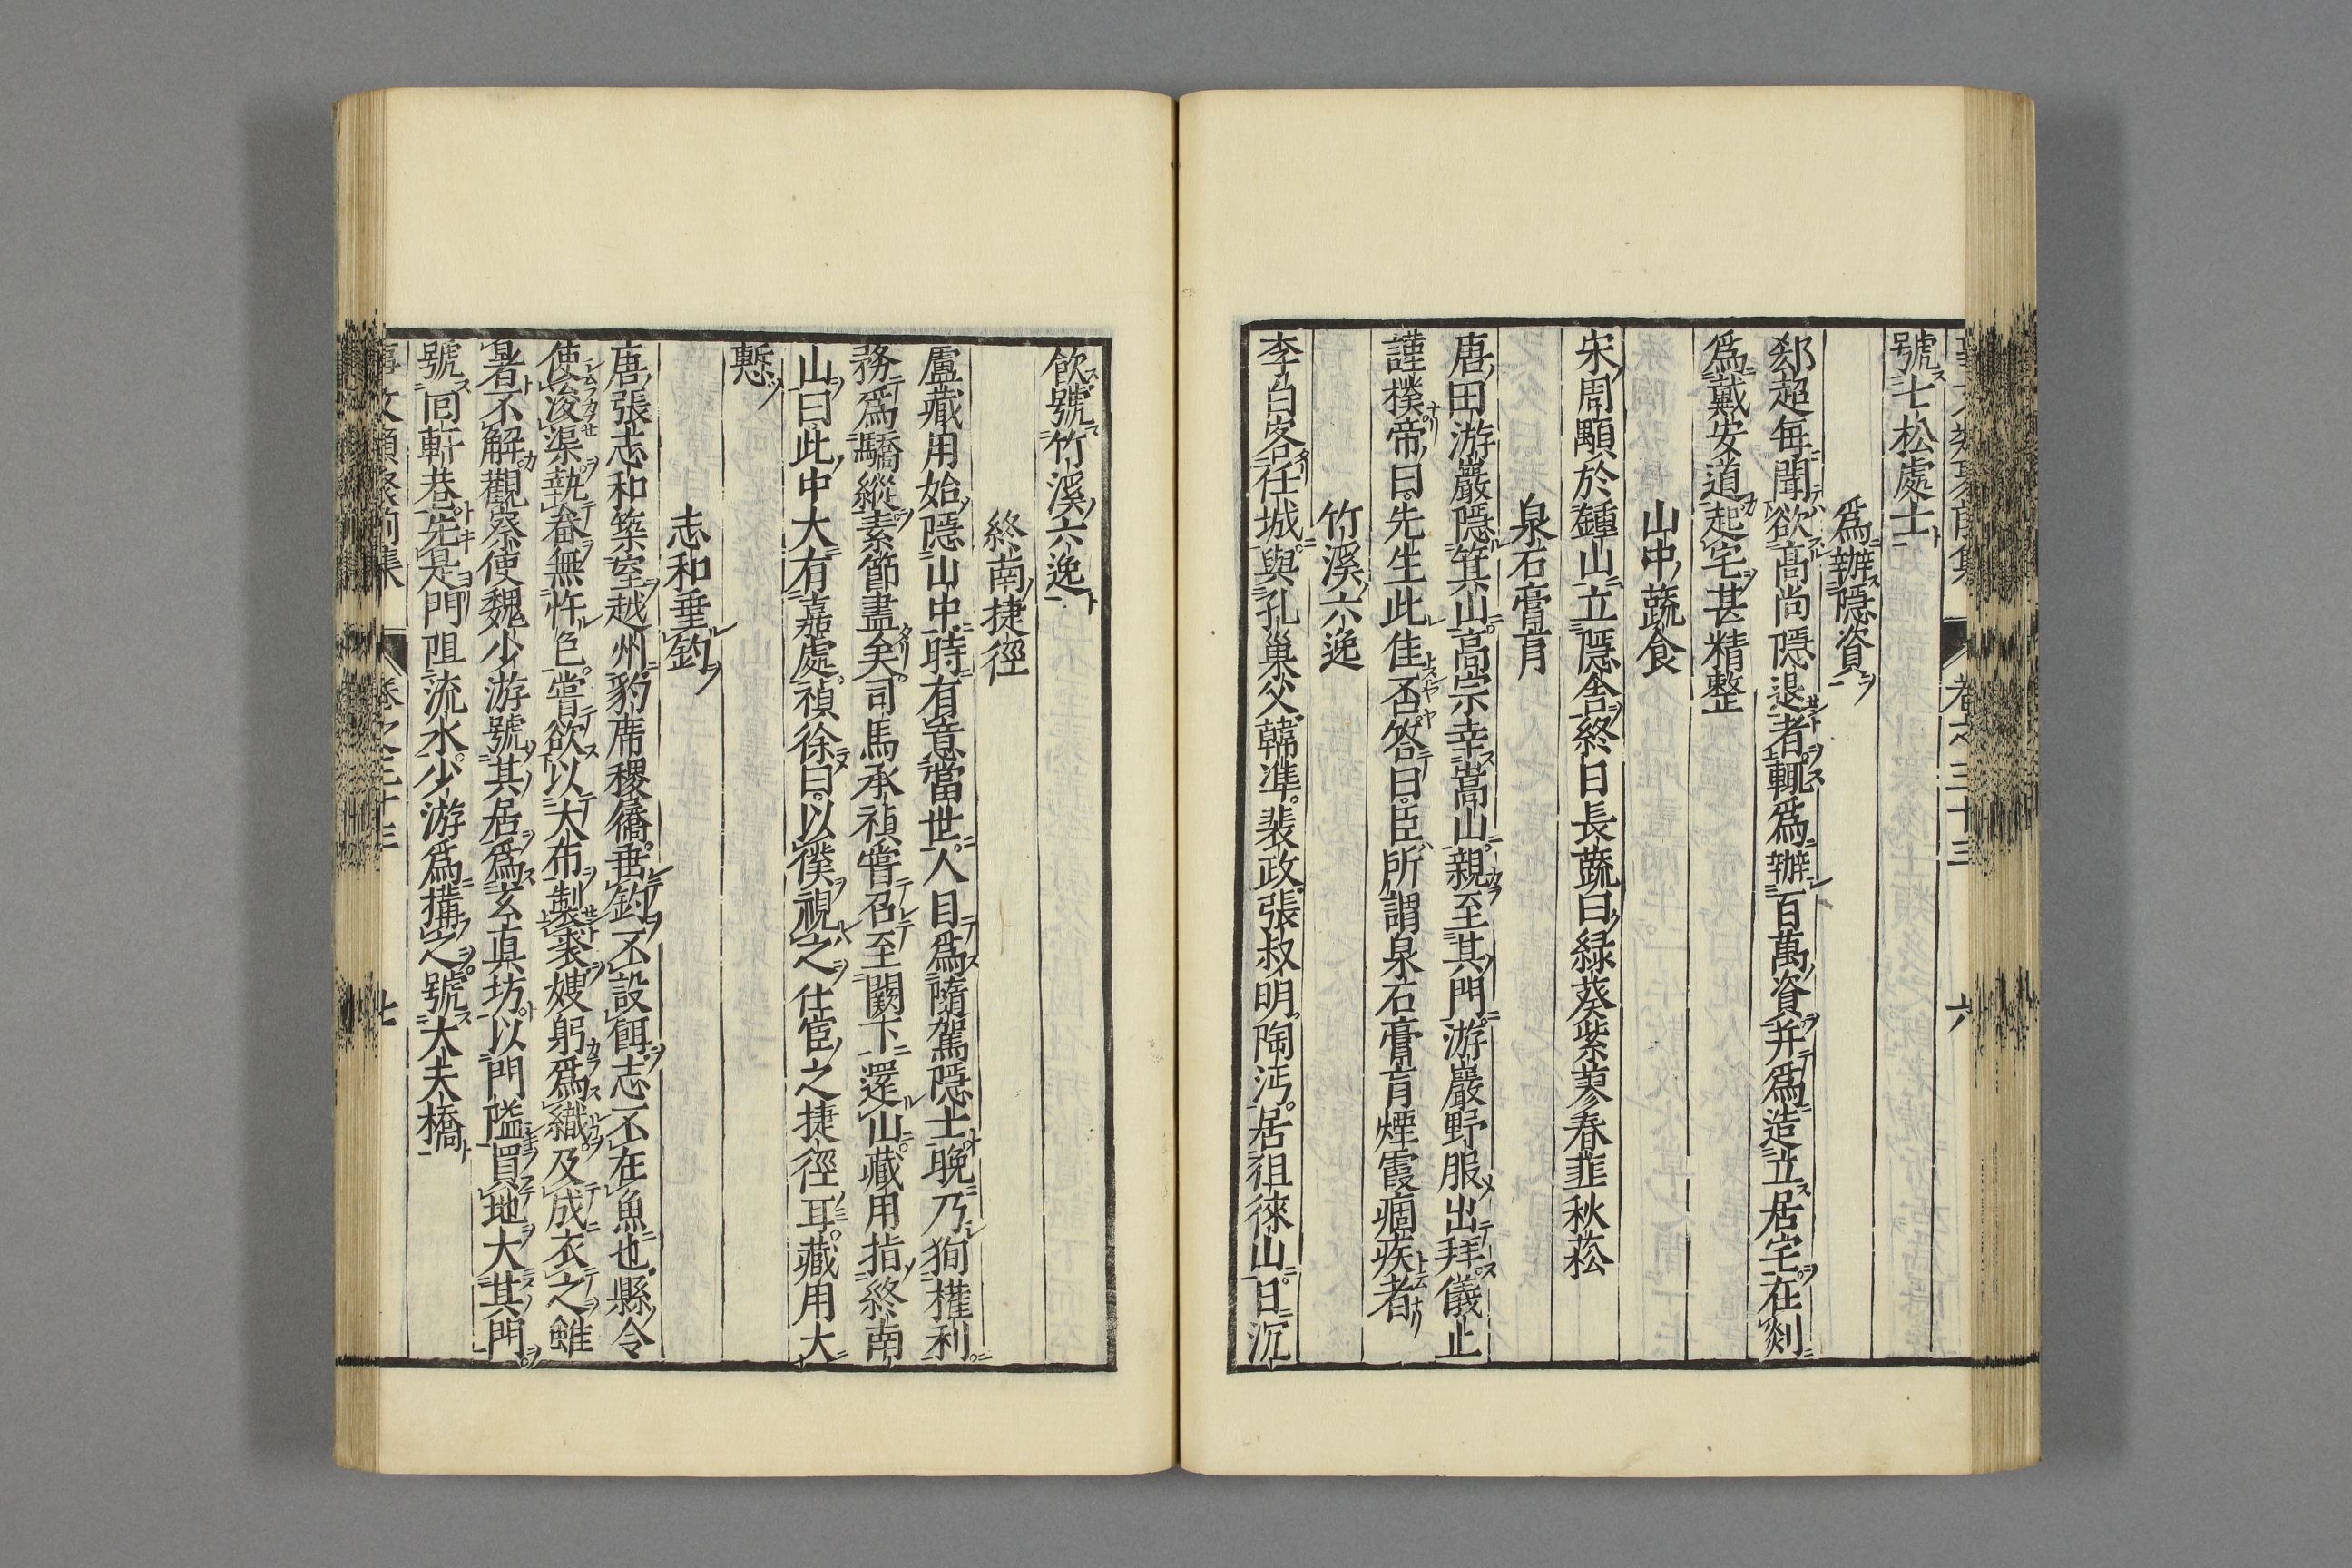 事文類聚前集 卷之三十三 六
號七松處士
爲辦隱資
郄超每聞欲高尚隱退者輒爲辦百萬資并爲造立居宅在剡
爲戴安道起宅甚精整
山中蔬食
宋周顒於鍾山立隱舍終日長蔬曰綠葵紫蓼春韭秋菘
泉石膏肓
唐田游巖隱箕山高宗幸嵩山親至其門游巖野服出拜儀止
謹樸帝曰先生此佳否答曰臣所謂泉石膏肓煙霞痼疾者
竹溪六逸
李白客任城與孔巢父韓準裴政張叔明陶沔居徂徠山日沉
飲號竹溪六逸
終南捷徑
盧藏用始隱山中時有意當世人目爲隨駕隱士晚乃狥權利
務爲驕縱素節盡矣司馬承禎嘗召至闕下還山藏用指終南
山曰此中大有嘉處禎徐曰以僕視之仕宦之捷徑耳藏用大
慙
志和垂釣
唐張志和築室越州豹席稷屩垂釣不設餌志不在魚也縣令
使浚渠執畚無怍色嘗欲以大布製裘嫂躬爲織及成衣之雖
暑不解觀察使魏少游號其居爲玄眞坊以門隘買地大其門
號囘軒巷先是門阻流水少游爲搆之號大夫橋
事文類聚前集 卷之三十三 七